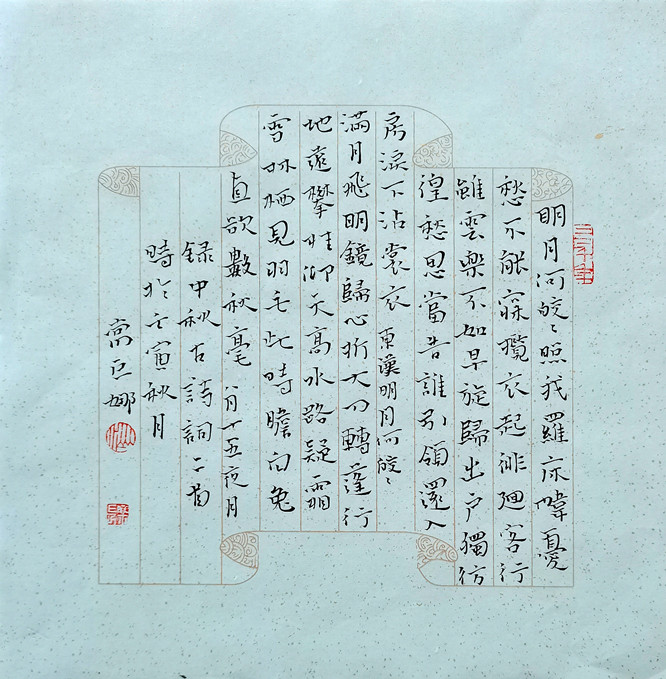 明月何皎々照我羅床幃憂
愁不能寐攬衣起徘廻客行
雖雲樂不如早旋歸出戶獨彷
徨愁思當告誰引領還入
房淚下沾裳衣 東漢明月何皎々
滿月飛明鏡歸心折大刀轉蓬行
地遠攀桂仰天高水路疑霜
雪林栖見羽毛此時瞻白兔
直欲數秋毫 八月十五夜月
録中秋古詩詞二首
時於壬寅秋月
娜